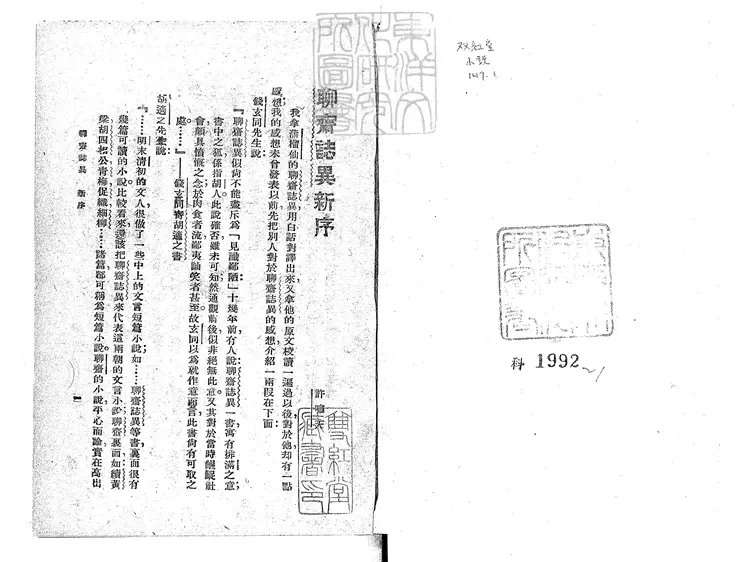 双紅堂
小説
147.1
聊齋誌異新序
許
我拿蒲榴仙的聊齋誌異用白話對譯出來又拿他的原文校讀一遍過以後對於他却有一點
感想我的感想未曾發表以前先把別人對於聊齋誌異的感想介紹一兩段在下面
錢玄同先生說
『聊齋誌異似尚不能盡斥為「見識鄙陋」十幾年前有人說聊齋誌異一書寓有排滿之意
書中之狐係指胡人此說確否雖未可知然通觀前後似非絕無此意又其對於當時齷齪社
會頗具憤慨之念於肉食者流鄙夷訕笑者甚至故玄同以為就作意而言此書尚有可取之
處……』——錢玄同寄胡適之書
胡適之先生說
『……明末清初的文人很做了一些中上的文言短篇小說如……聊齋誌異等書裏面很有
幾篇可讀的小說比較看來還該把聊齋誌異來代表這兩朝的文言小說聊齋裏面如續黃
粱胡四相公青梅促織細柳……諸篇都可稱為短篇小說聊齋的小說平心而論實在高出
聊齋誌異 新序
一
雙紅堂
藏書印
東洋文
化研究
所圖書
科 1992